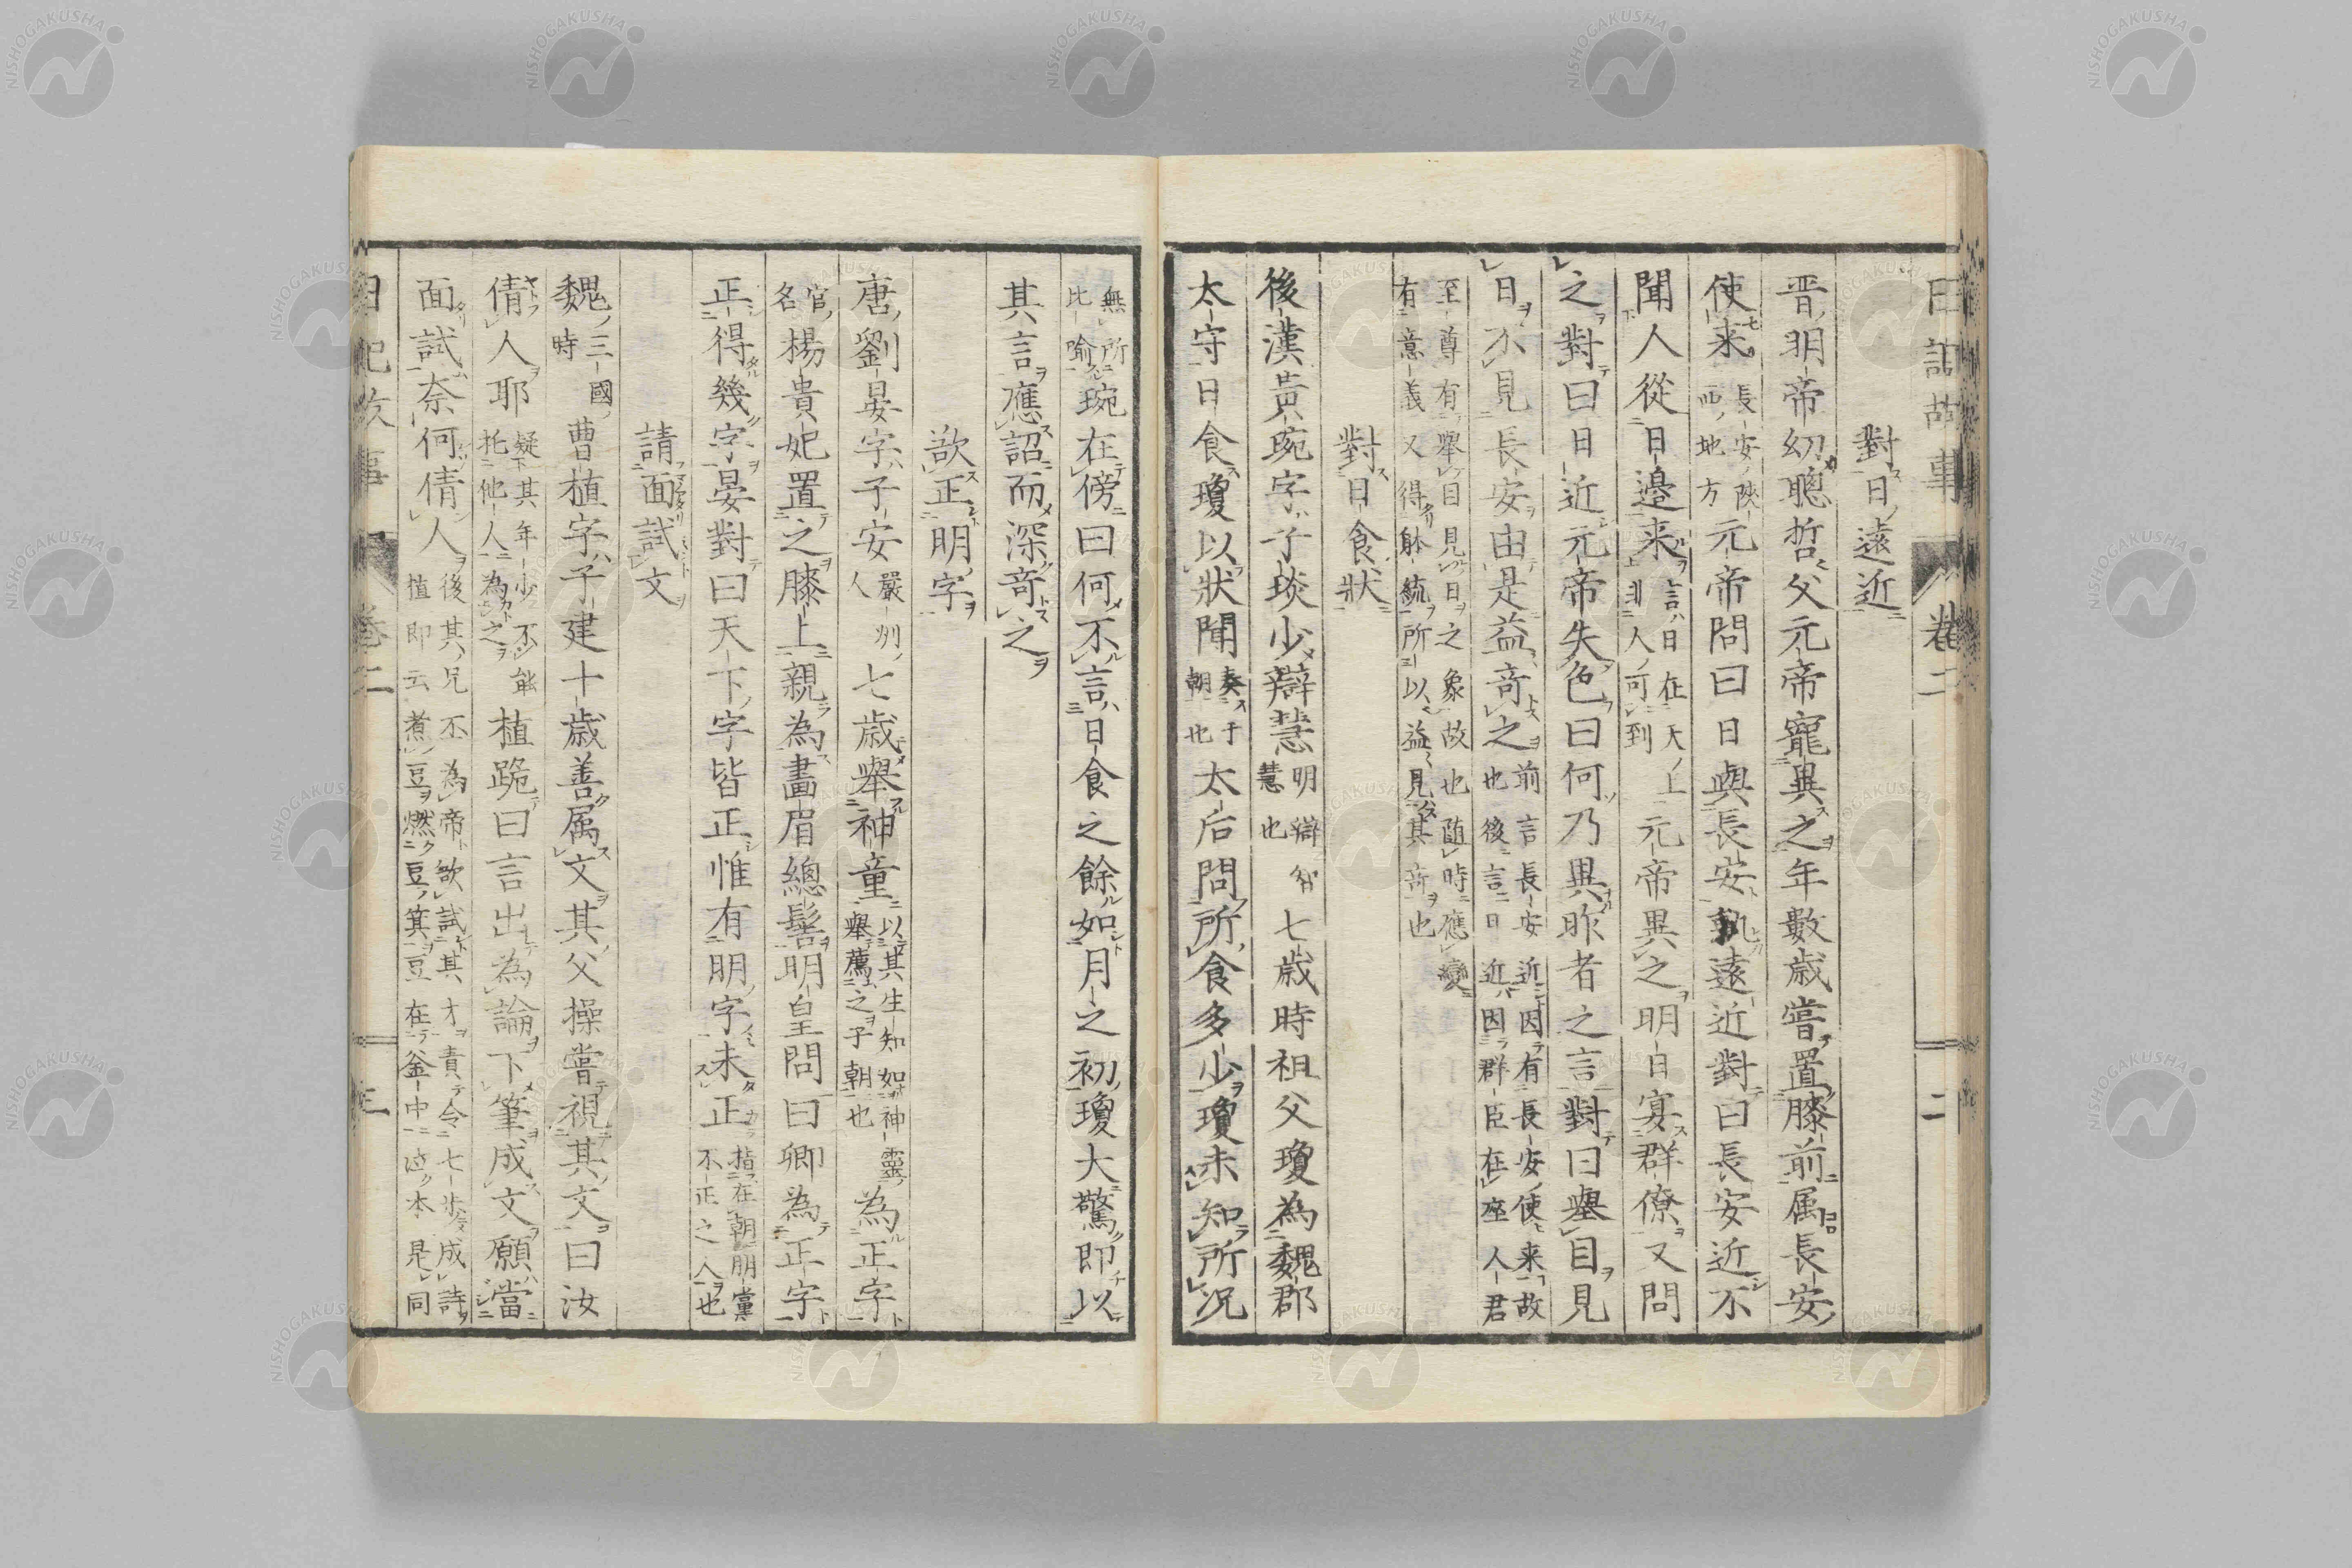 日記故事 卷二 二
對日遠近
晋明帝幼聰哲父元帝寵異之年數歳嘗置膝前属長安
使来長安陝西地方元帝問曰日與長安孰遠近對曰長安近不
聞人從日邉来言日在天上非人可到元帝異之明日宴群僚又問
之對曰日近元帝失色曰何乃異昨者之言對曰擧目見
日不見長安由是益竒之前言長安近因有長安使来故也後言日近因群臣在座人君
至尊有擧目見日之象故也随時應變有意義又得躰統所以益見其竒也
對日食狀
後漢黄琬字子琰少辯慧明辯智慧也七歳時祖父瓊為魏郡
太守日食瓊以狀聞奏于朝也太后問所食多少瓊未知所况
無所比喻琬在傍曰何不言日食之餘如月之初瓊大驚即以
其言應詔而深竒之
欲正明字
唐劉晏字子安嚴州人七歳擧神童以其生知如神靈擧薦之子朝也為正字
官名楊貴妃置之膝上親為畫眉總髻明皇問曰卿為正字
正得幾字晏對曰天下字皆正惟有朋字未正指在朝朋黨不正之人也
請面試文
魏三國時曹植字子建十歳善属文其父操嘗視其文曰汝
倩人耶疑其年少不能托他人為之植跪曰言出為論下筆成文願當
面試奈何倩人後其兄不為帝欲試其才責令七歩成詩植即云煮豆燃豆箕豆在釜中泣本是同
日記故事 卷二 三
NISHOGAKUSHA